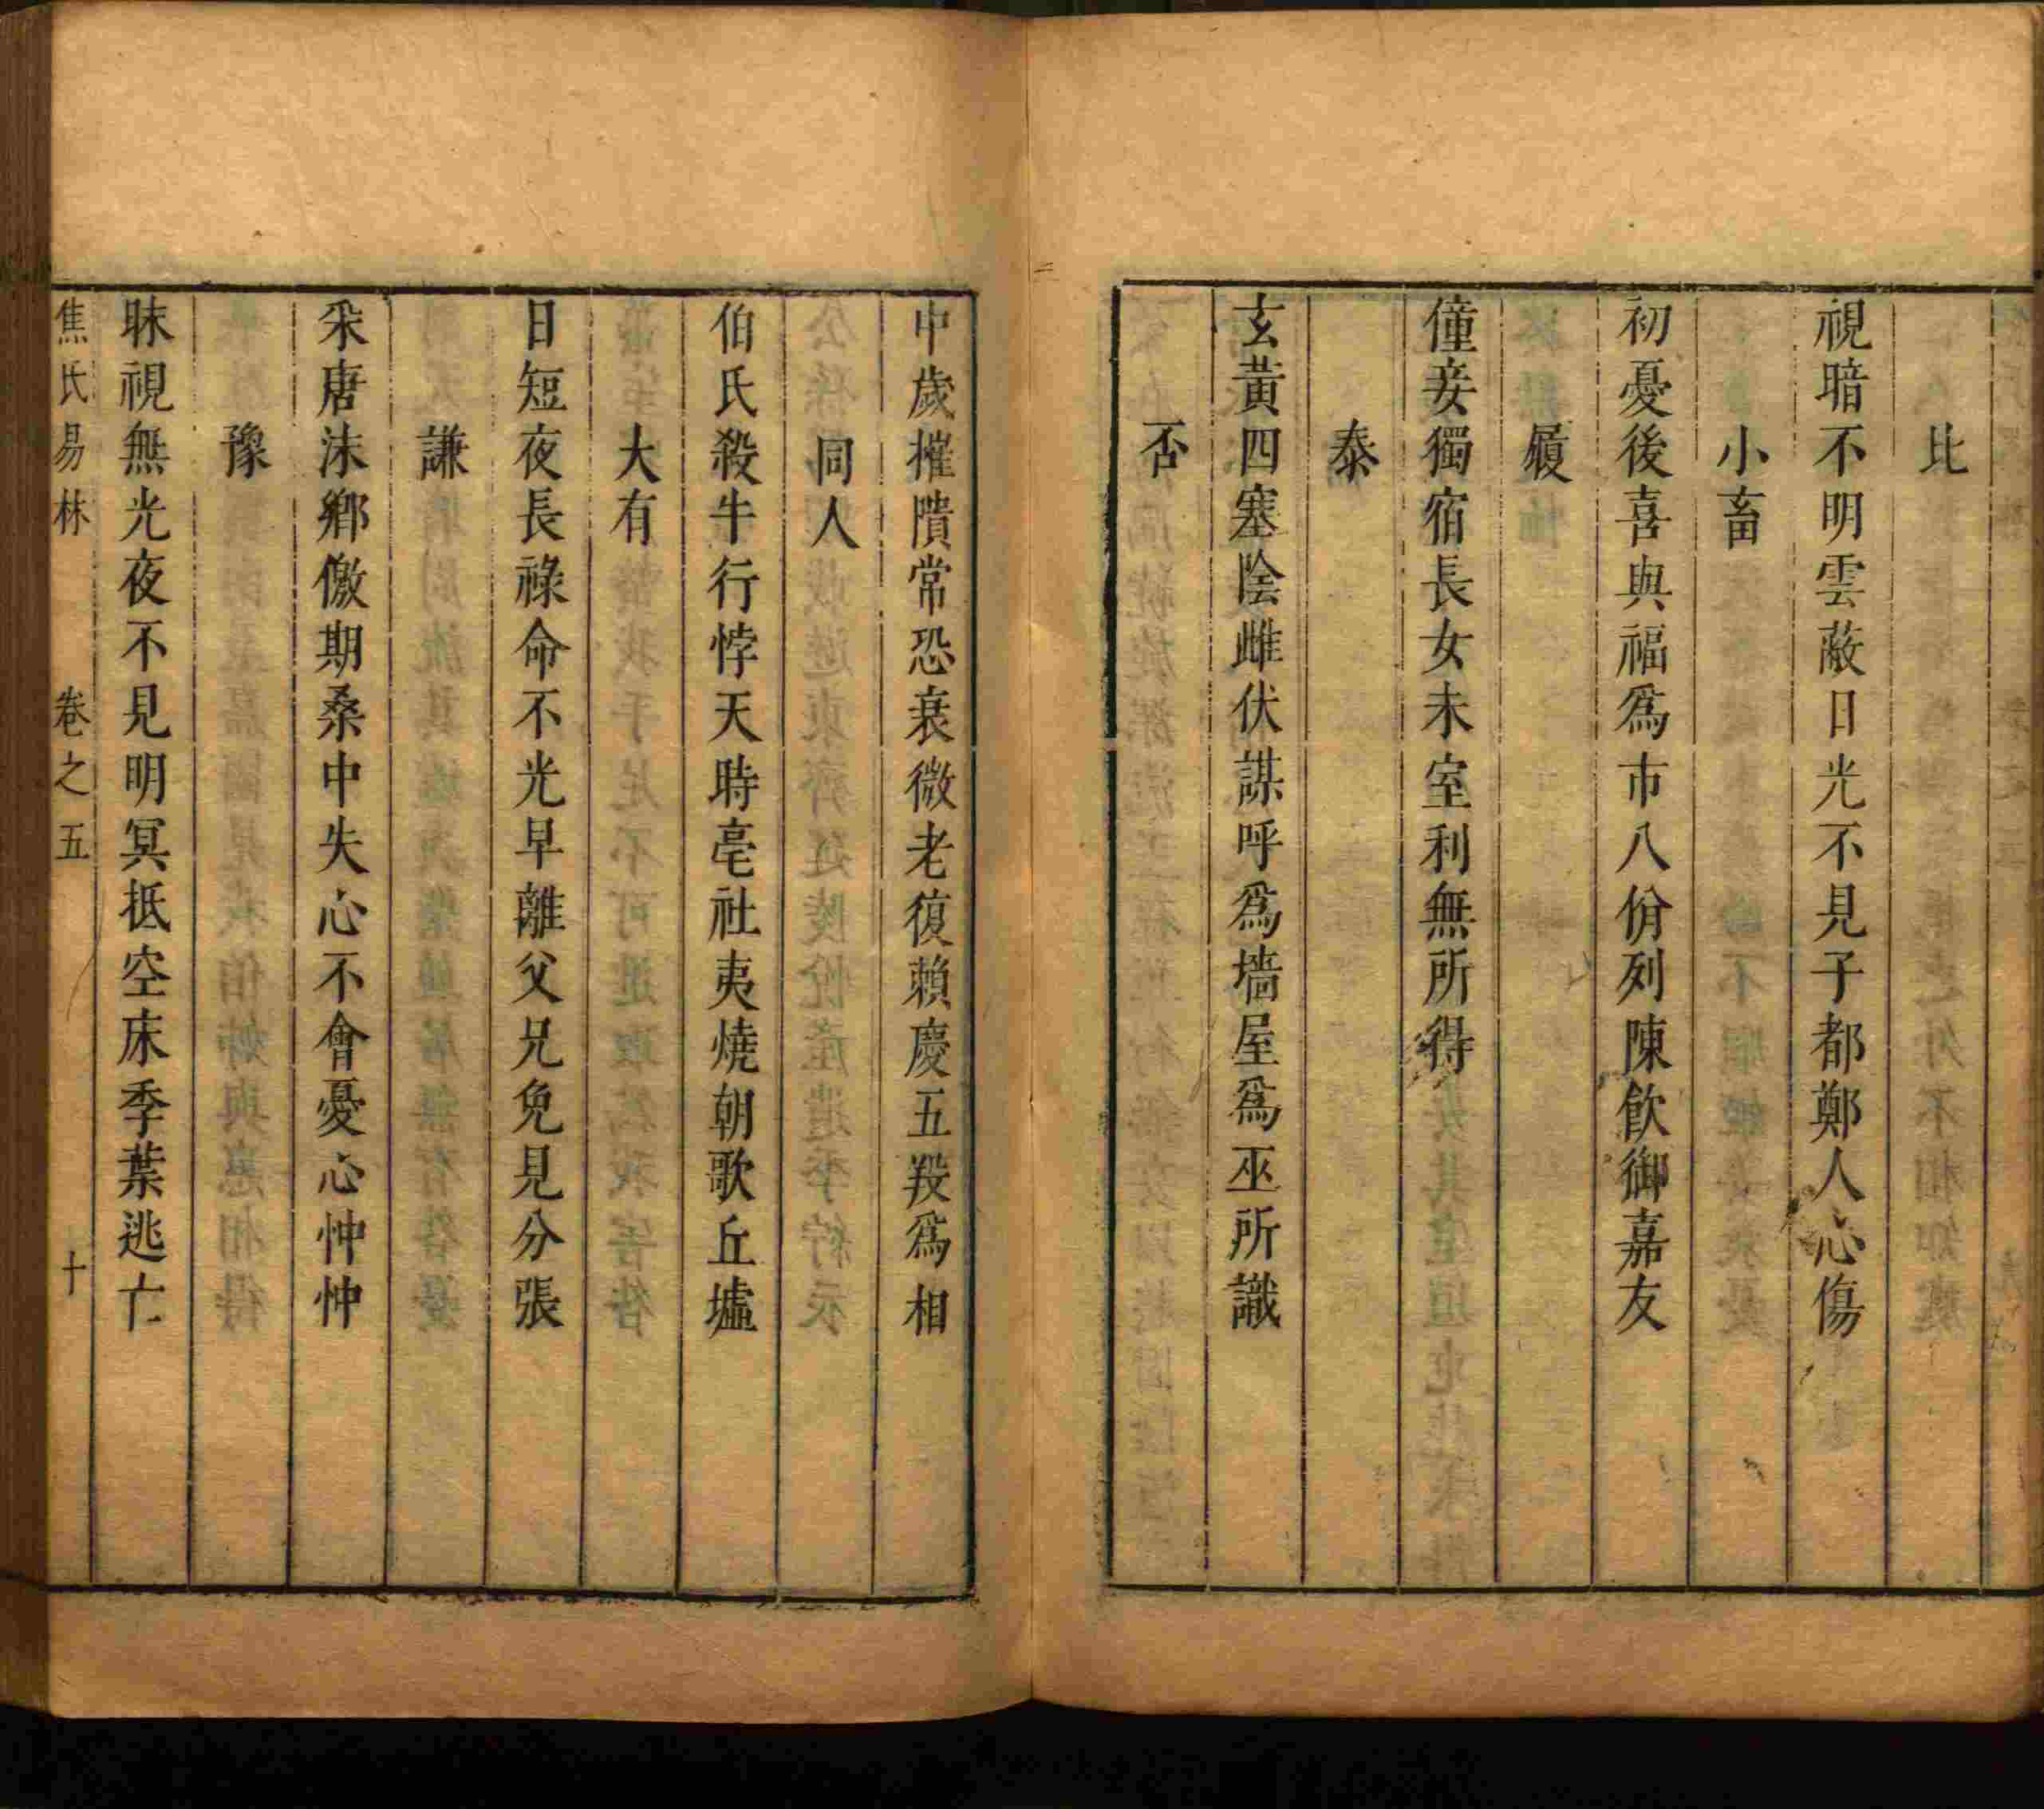 比
視暗不明雲蔽日光不見子都鄭人心傷
小畜
初憂後喜與福爲市八佾列陳飲御嘉友
履
僮妾獨宿長女未室利無所得
泰
玄黃四塞陰雌伏謀呼爲墻屋爲巫所識
否
中歲摧隤常恐衰微老復賴慶五羖爲相
同人
伯氏殺牛行悖天時亳社夷燒朝歌丘墟
大有
日短夜長祿命不光早離父兄免見分張
謙
采唐沬鄉徼期桑中失心不會憂心忡忡
豫
眛視無光夜不見明冥抵空床季葉逃亡
焦氏易林 卷之五 十